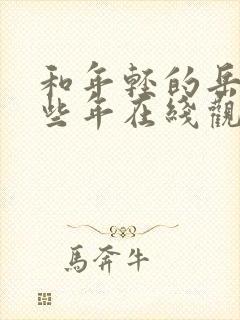 和年轻的岳
些年在线觀
馬奔牛